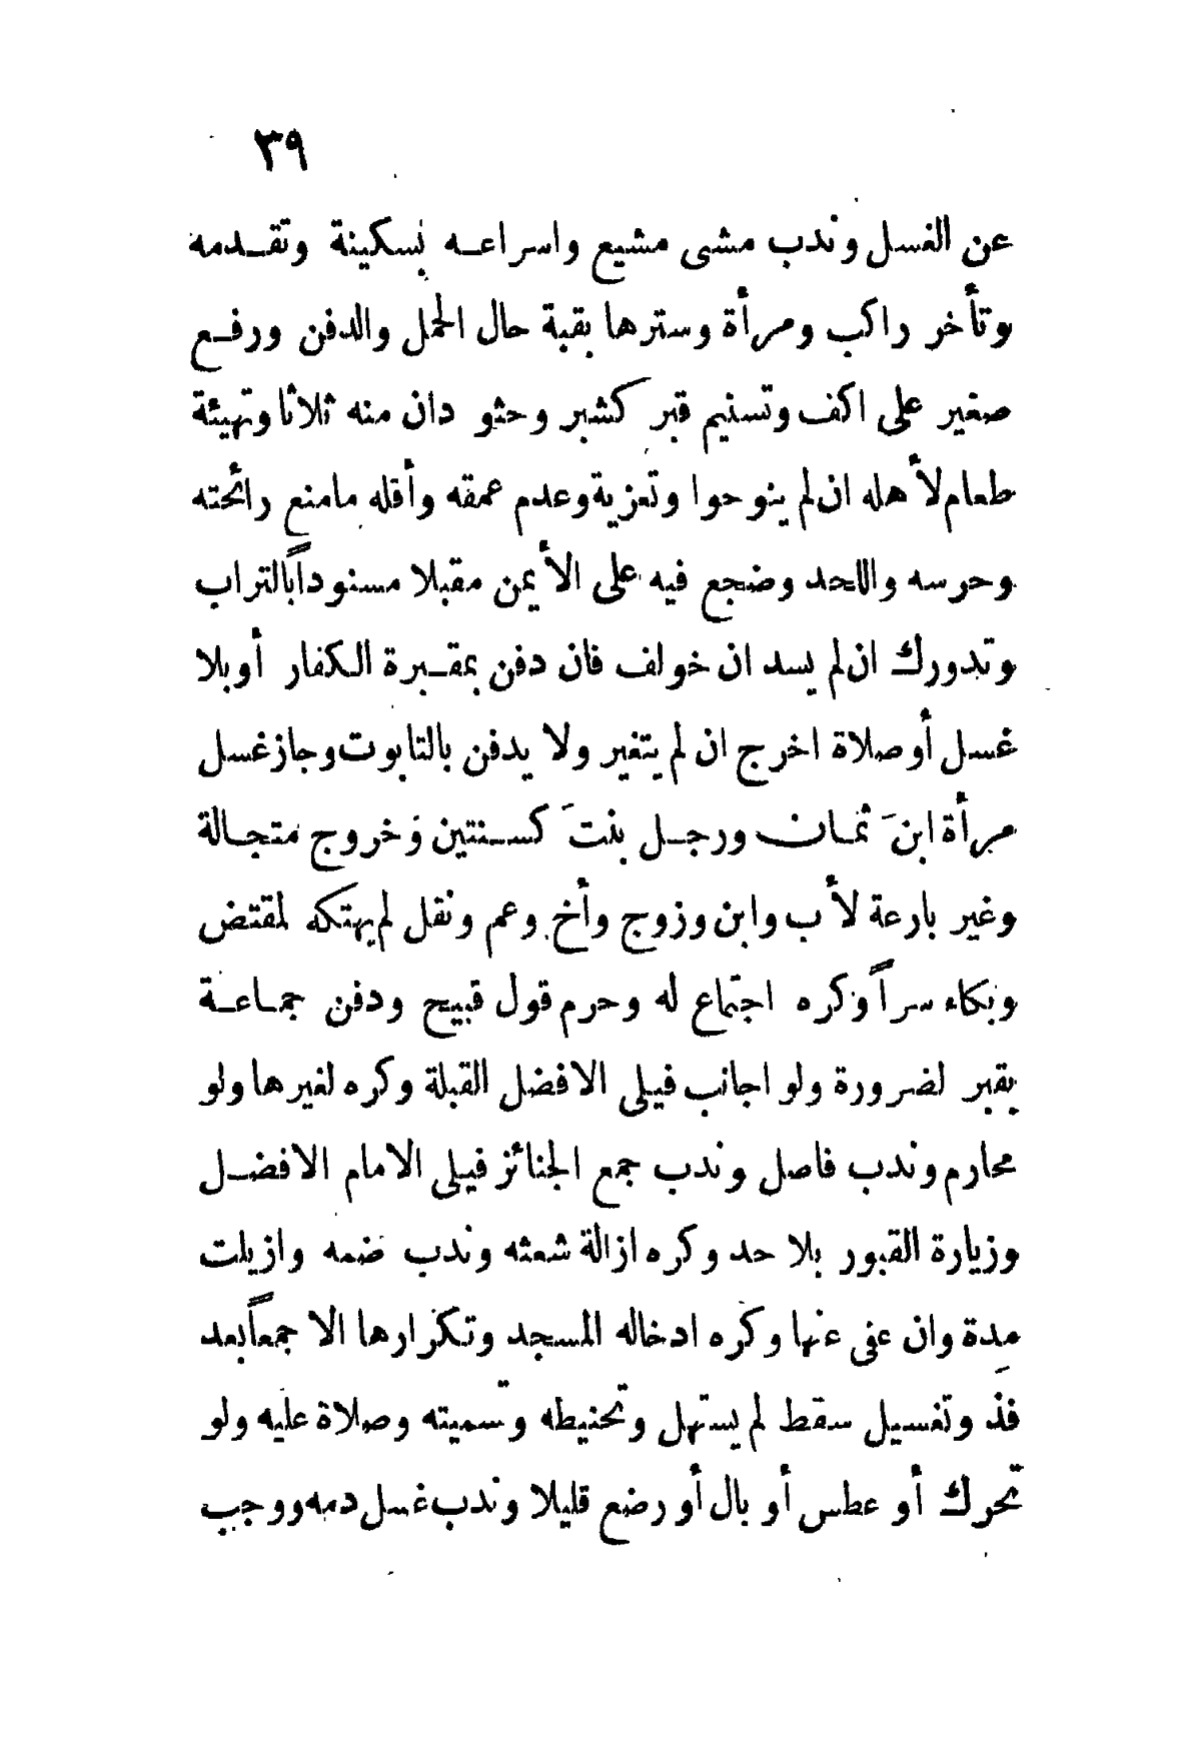 ٣٩
عن الغسل وندب مشى مشيع واسراعه بسكينة وتقدمه
وتأخر راكب ومرأة وسترها بقبة حال الحمل والدفن ورفع
صغير على اكف وتسنيم قبر كشبر وحثو دان منه ثلاثا وتهيئة
طعام لأهله ان لم ينوحوا وتعزية وعدم عمقه وأقله مامنع رائحته
وحرسه واللحد وضجع فيه على الأيمن مقبلا مسنوداً بالتراب
وتدورك ان لم يسد ان خولف فان دفن بمقبرة الكفار أو بلا
غسل أو صلاة اخرج ان لم يتغير ولا يدفن بالتابوت وجاز غسل
مرأة ابنَ ثمان ورجل بنتَ كسنتين وخروج متجالة
وغير بارعة لأب وابن وزوج وأخ وعم ونقل لم يهتكه لمقتض
وبكاء سراً وكره اجتماع له وحرم قول قبيح ودفن جماعة
بقبر لضرورة ولو اجانب فيلى الافضل القبلة وكره لغيرها ولو
محارم وندب فاصل وندب جمع الجنائز فيلى الامام الافضل
وزيارة القبور بلا حد وكره ازالة شعثه وندب ضمه وازيلت
مِدة وان عفى عنها وكره ادخاله المسجد وتكرارها الا جمعاً بعد
فذ وتغسيل سقط لم يستهل وتحنيطه وتسميته وصلاة عليه ولو
تحرك أو عطس أو بال أو رضع قليلا وندب غسل دمه ووجب